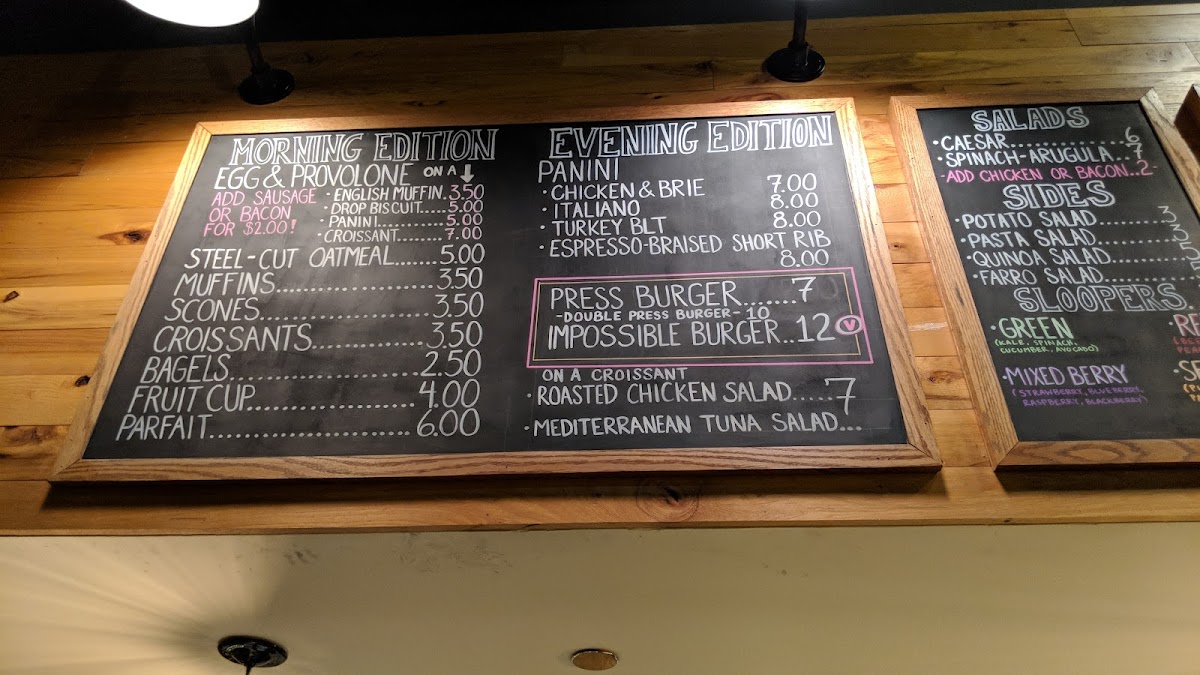 MORNING EDITION
EGG & PROVOLONE ON A ↓
ADD SAUSAGE
OR BACON
FOR $2.00!
· ENGLISH MUFFIN..3.50
· DROP BISCUIT......5.00
· PANINI................5.00
· CROISSANT.........7.00
STEEL-CUT OATMEAL.......5.00
MUFFINS........................3.50
SCONES..........................3.50
CROISSANTS..................3.50
BAGELS..........................2.50
FRUIT CUP......................4.00
PARFAIT.........................6.00
EVENING EDITION
PANINI
· CHICKEN & BRIE 7.00
· ITALIANO 8.00
· TURKEY BLT 8.00
· ESPRESSO-BRAISED SHORT RIB
8.00
PRESS BURGER.......7
-DOUBLE PRESS BURGER- 10
IMPOSSIBLE BURGER..12 V
ON A CROISSANT
· ROASTED CHICKEN SALAD.....7
· MEDITERRANEAN TUNA SALAD...
SALADS
· CAESAR...............6
· SPINACH-ARUGULA...7
-ADD CHICKEN OR BACON..2
SIDES
· POTATO SALAD..........3
· PASTA SALAD............3
· QUINOA SALAD..........5
· FARRO SALAD............5
SLOOPERS
· GREEN
(KALE, SPINACH,
CUCUMBER, AVOCADO)
· MIXED BERRY
(STRAWBERRY, BLUEBERRY,
RASPBERRY, BLACKBERRY)